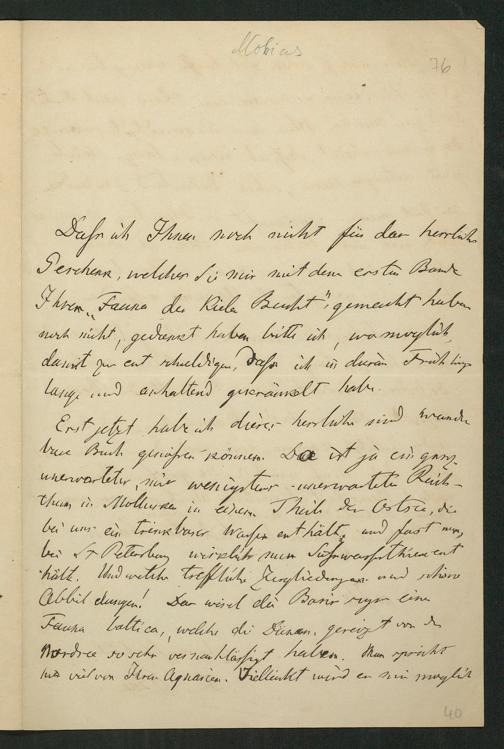 Mobius
76
Dass ich Ihnen noch nicht für das herrliche
Geschenk, welches Sie mir mit dem ersten Bande
Ihrer „Fauna der Kieler Bucht", gemacht haben
noch nicht, gedankt haben bitte ich, wo möglich,
damit zu entschuldigen, dass ich in diesem Frühling
lange und anhaltend gekränkelt habe.
Erst jetzt habe ich dieses herrliche und wunder
bare Buch geniessen können. Da ist ja ein ganz
unerwarteter, mir wenigstens unerwarteter Reich-
thum in Mollusken in einem Theile der Ostsee, die
bei uns ein trinkbares Wasser enthält, und fast nur,
bei St Petersburg wirklich nur Süsswasserthiere ent
hält. Und welche treffliche Zergliederungen und schöne
Abbildungen! Das wird die Basis seyn einer
Fauna baltica, welche die Dänen, gereizt von der
Nordsee so sehr vernachlässigt haben. Man spricht
viel von Ihren Aquarien. Vielleicht wird es mir möglich
40